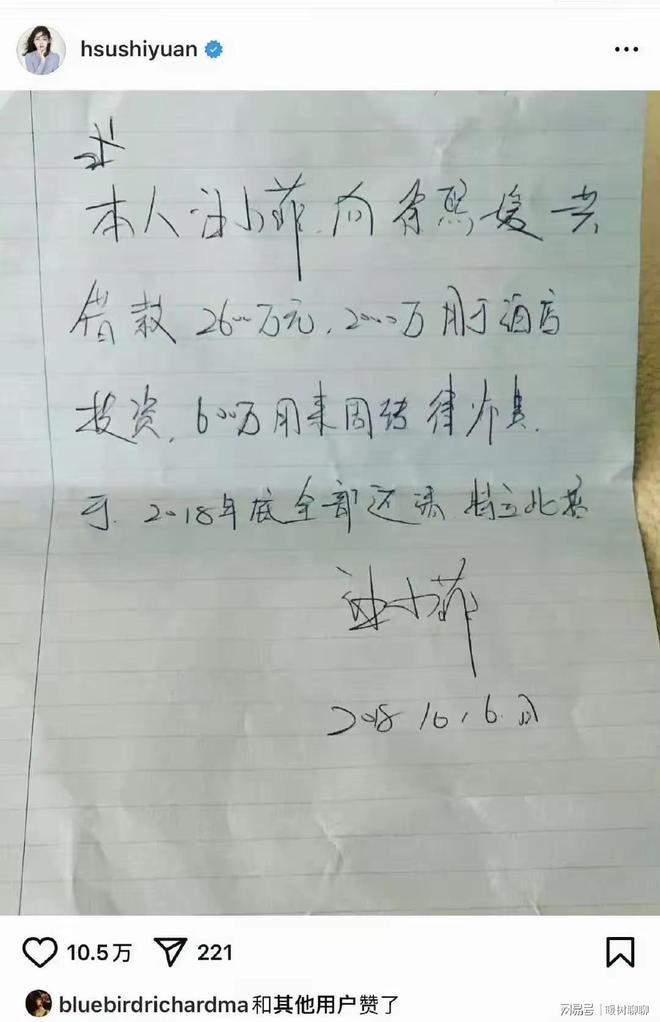 hsushiyuan
本人汪小菲.向徐熙媛共
借款 2600万元,2000万用于酒店
投资,600万用来周转律师费.
于.2018年底全部还清 特立此据
汪小菲
2018.10.6.日
10.5万 221
bluebirdrichardma和其他用户赞了
网易号 | 暖树聊聊